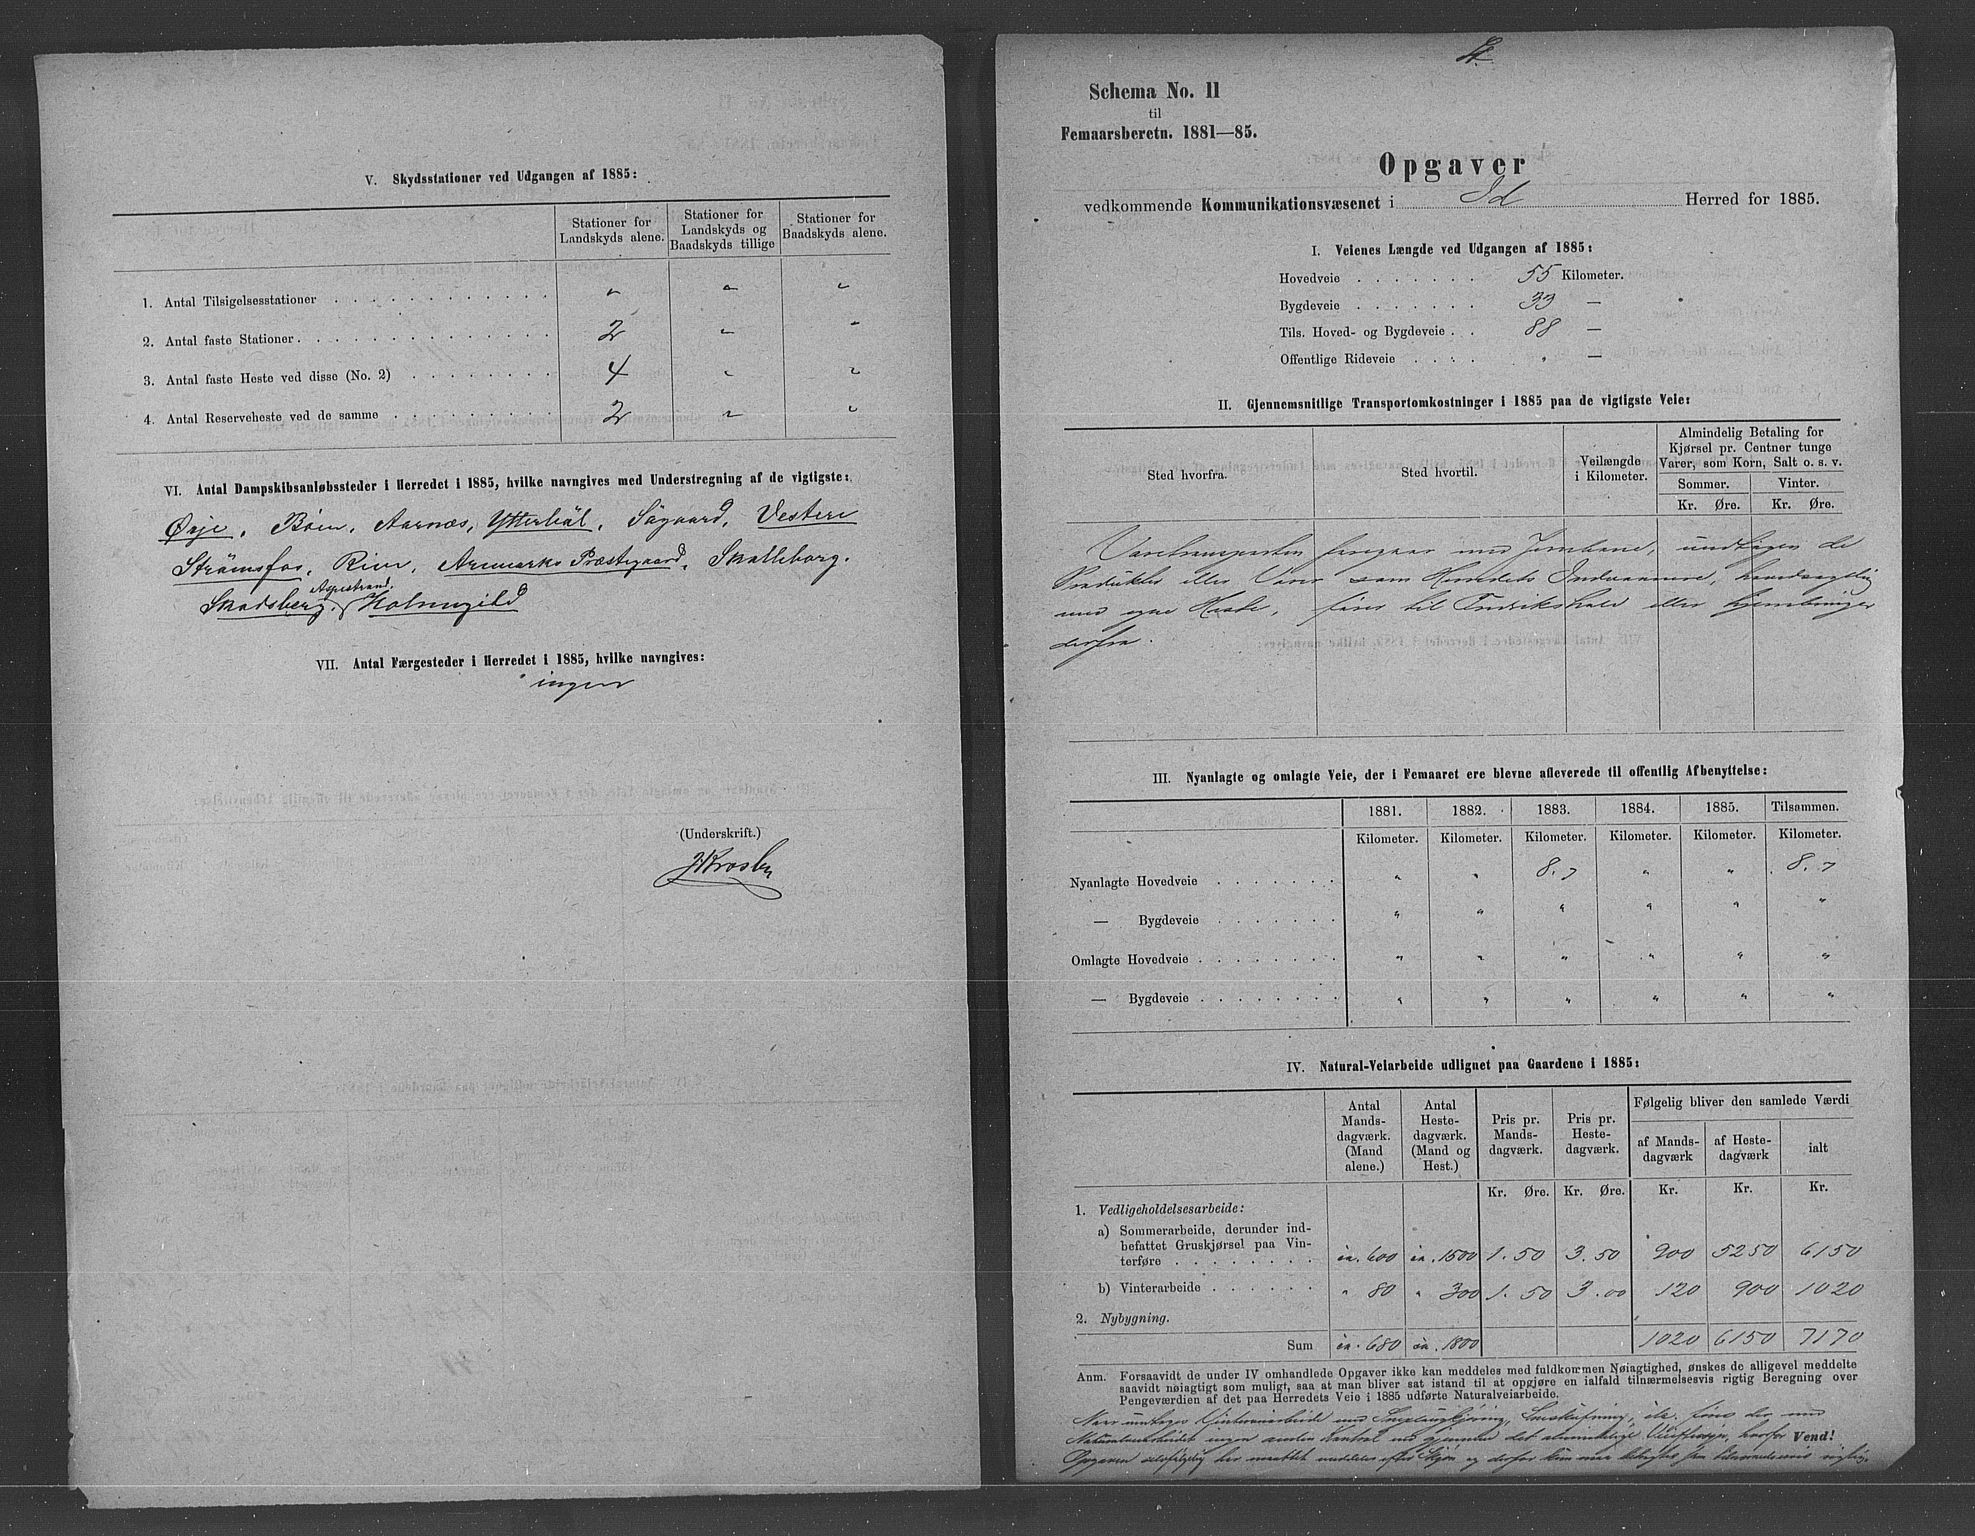 V. Skydsstationer ved Udgangen af 1885:
Stationer for Landskyds alene. Stationer for Landskyds og Baadskyds tillige Stationer for Baadskyds alene.
1. Antal Tilsigelsesstationer " " "
2. Antal faste Stationer 2 " "
3. Antal faste Heste ved disse (No. 2) 4 " "
4. Antal Reserveheste ved de samme 2 " "
VI. Antal Dampskibsanløbssteder i Herredet i 1885, hvilke navngives med Understregning af de vigtigste:
Ørje, Böen, Aarnæs, Ytterböl, Sögaard, Vestere
Strömsfos, Rive, Aremarks Præstegaard, Skalleborg.
Aspestrand,
Skodsberg, Holmegild
VII. Antal Færgesteder i Herredet i 1885, hvilke navngives:
ingen
(Underskrift.)
Schema No. 11
til
Femaarsberetn. 1881—85.
Opgaver
vedkommende Kommunikationsvæsenet i Id Herred for 1885.
I. Veienes Længde ved Udgangen af 1885:
Hovedveie 55 Kilometer.
Bygdeveie 33 —
Tils. Hoved- og Bygdeveie 88 —
Offentlige Rideveie " —
II. Gjennemsnitlige Transportomkostninger i 1885 paa de vigtigste Veie:
Sted hvorfra. Sted hvortil. Veilængde i Kilometer. Almindelig Betaling for Kjørsel pr. Centner tunge Varer, som Korn, Salt o. s. v.
Sommer. Vinter.
Kr. Øre. Kr. Øre.
Varetransporten foregaar med Jernbane, undtagen de
Produkter eller Varer som Herredets Indvaanere, hovedsagelig
med egne Heste, fører til Fredrikshald eller hjembringer
derfra.
III. Nyanlagte og omlagte Veie, der i Femaaret ere blevne afleverede til offentlig Afbenyttelse:
1881. 1882. 1883. 1884. 1885. Tilsammen.
Kilometer. Kilometer. Kilometer. Kilometer. Kilometer. Kilometer.
Nyanlagte Hovedveie " " 8.7 " " 8.7
— Bygdeveie " " " " " "
Omlagte Hovedveie " " " " " "
— Bygdeveie " " " " " "
IV. Natural-Veiarbeide udlignet paa Gaardene i 1885:
Antal Mandsdagværk. (Mand alene.) Antal Hestedagværk. (Mand og Hest.) Pris pr. Mandsdagværk. Pris pr. Hestedagværk. Følgelig bliver den samlede Værdi
af Mandsdagværk af Hestedagværk ialt
Kr. Øre. Kr. Øre. Kr. Kr. Kr.
1. Vedligeholdelsesarbeide:
a) Sommerarbeide, derunder ind-
befattet Gruskjørsel paa Vin-
terføre ca. 600 ca. 1500 1.50 3.50 900 5250 6150
b) Vinterarbeide " 80 " 300 1.50 3.00 120 900 1020
2. Nybygning.
Sum ca. 680 ca. 1800 1020 6150 7170
Anm. Forsaavidt de under IV omhandlede Opgaver ikke kan meddeles med fuldkommen Nøiagtighed, ønskes de alligevel meddelte
saavidt nøiagtigt som muligt, saa at man bliver sat istand til at opgjøre en ialfald tilnærmelsesvis rigtig Beregning over
Pengeværdien af det paa Herredets Veie i 1885 udførte Naturalveiarbeide.
Naar undtages Vinterarbeide med Sneplougkjøring, Sneskufning, etc. føres der med
Naturalarbeidet ingen anden Kontrol end gjennem det almindelige hvorfor Vend!
Opgaven selvfølgelig har maattet meddeles efter Skjøn og derfor kun maa betragtes som tilnærmelsesvis rigtig.